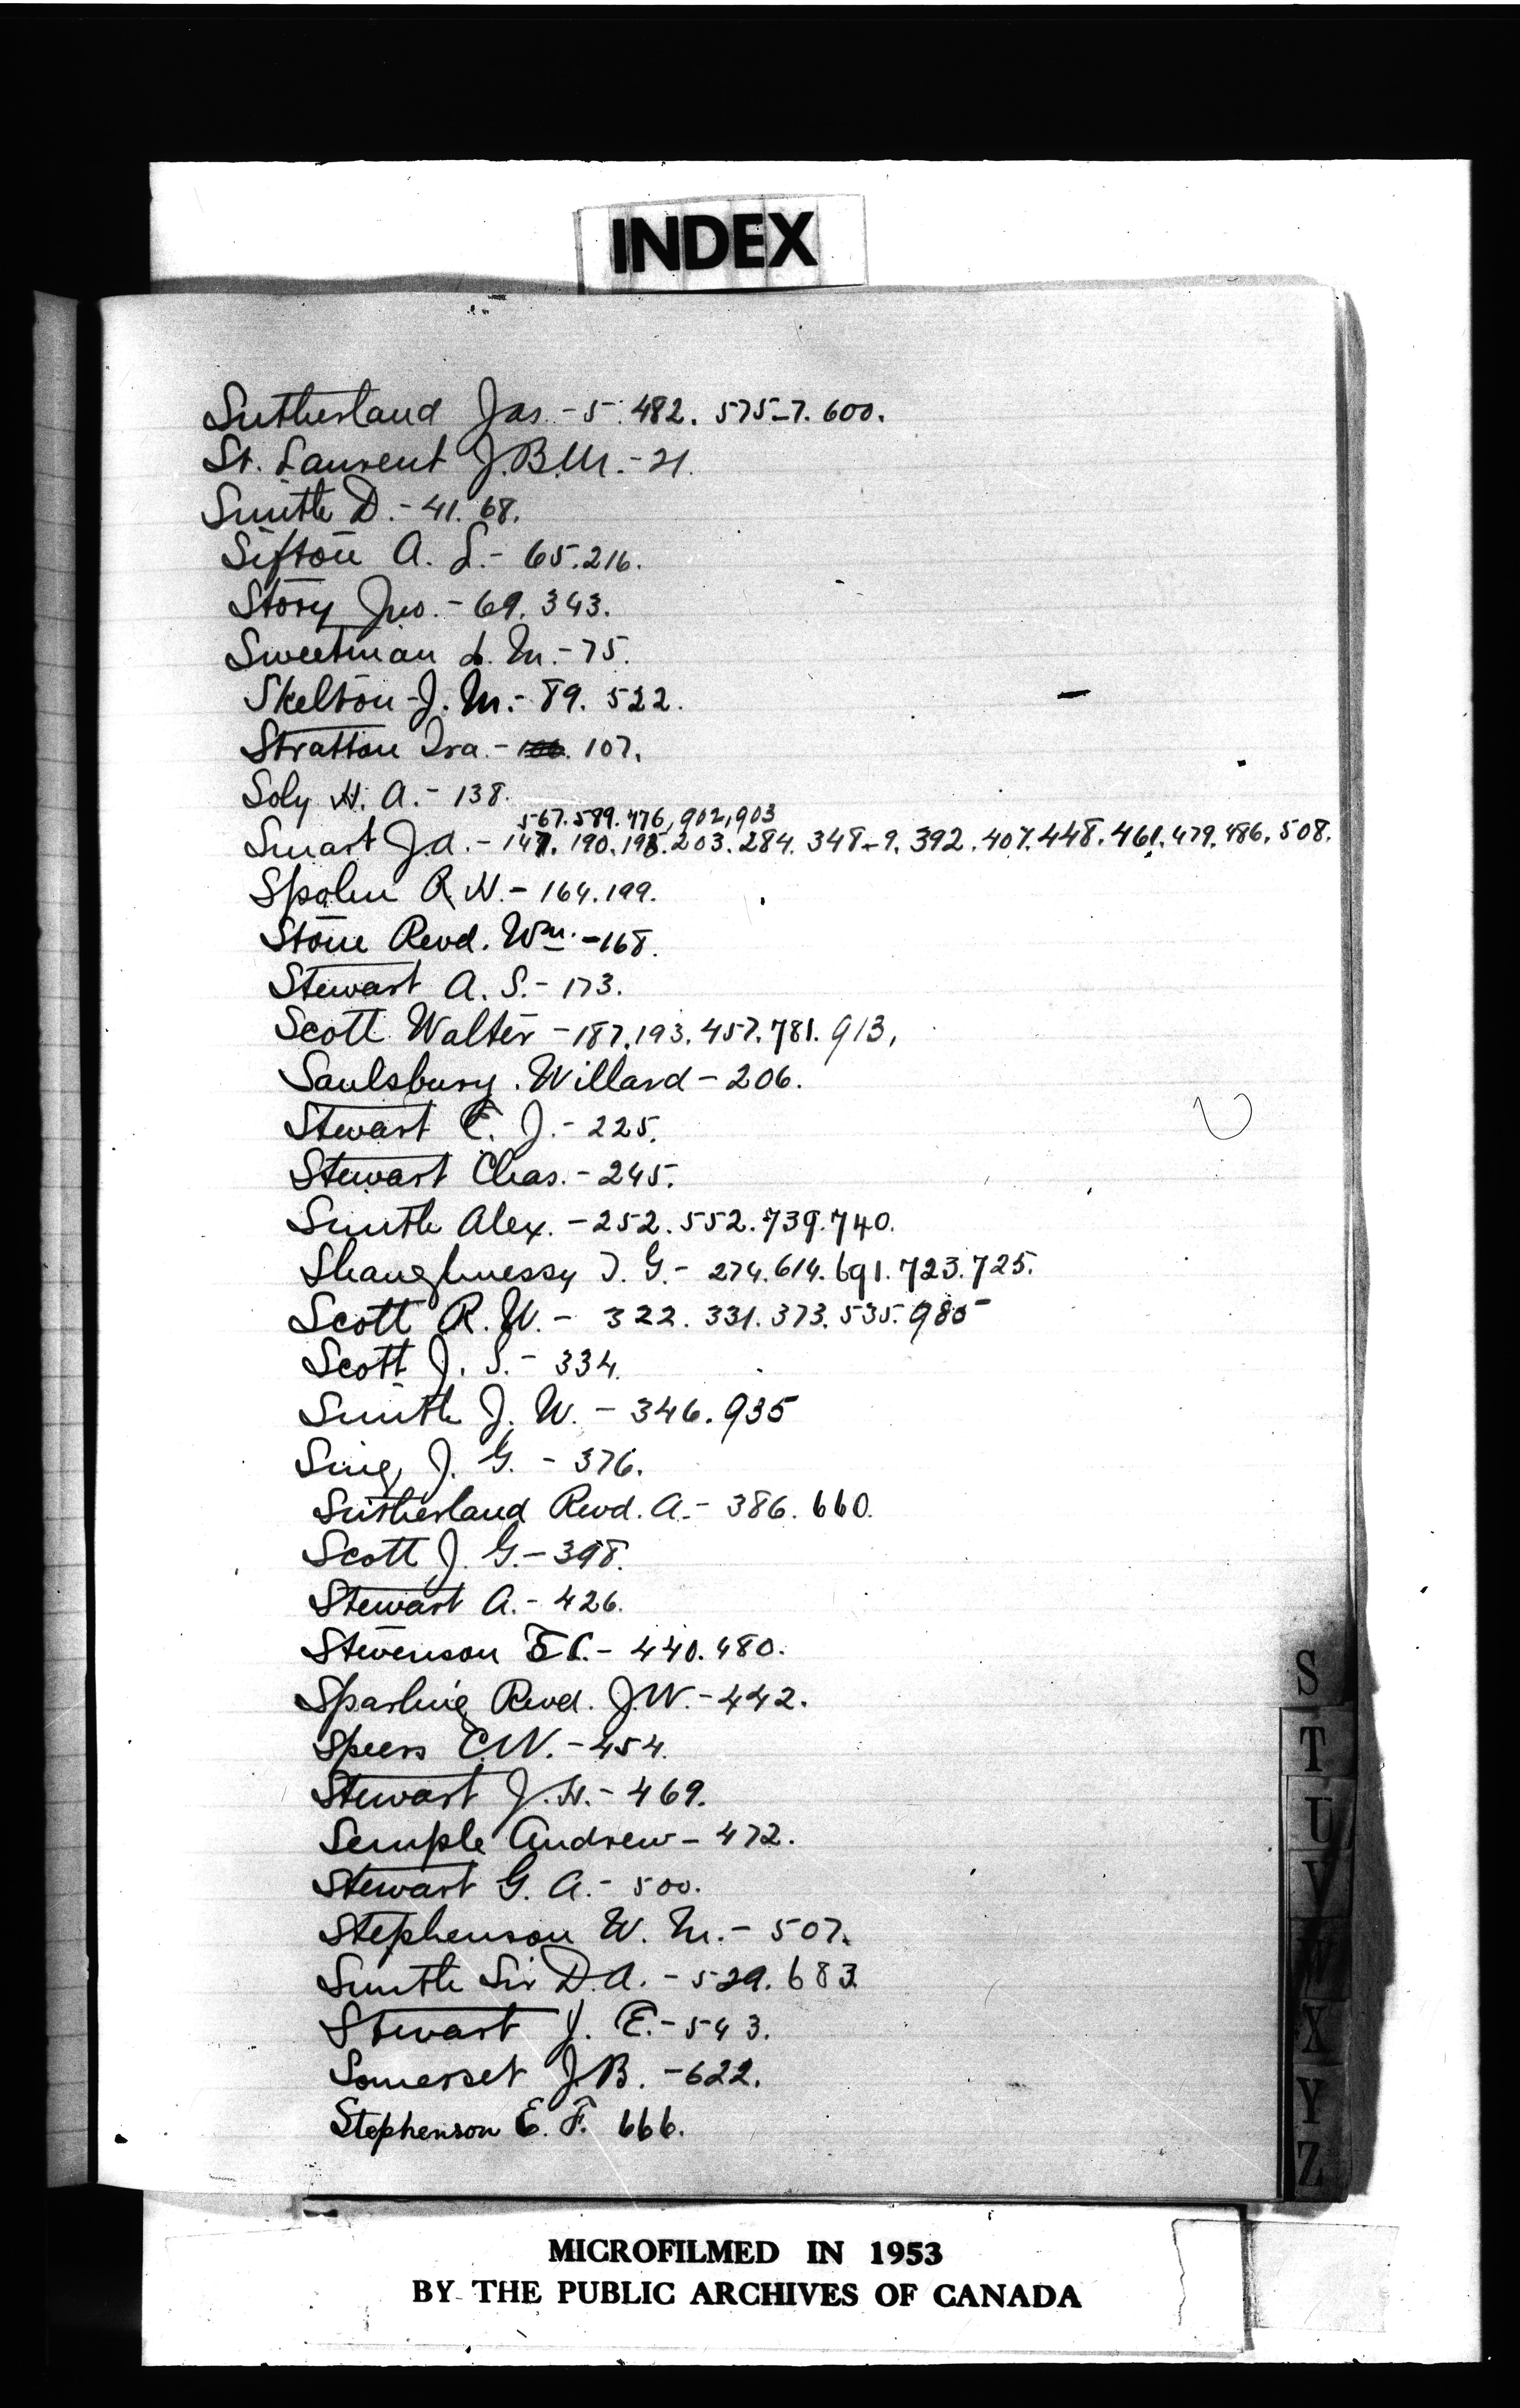 INDEX
Sutherland Jas. - 5. 482. 575-7. 600.
St. Laurent J.B.M. - 21.
Smith D. - 41. 68.
Sifton A. L. - 65. 216.
Story Jno. - 69. 343.
Sweetman L. M. - 75.
Skelton J. M. - 89. 522.
Stratton Ira. - 106. 107.
Soly H. A. - 138.
567. 589. 776, 902, 903
Smart J.A. - 147. 190. 195. 203. 284. 348-9. 392. 407. 448. 461. 479. 486. 508.
Spohn R. H. - 164. 199.
Stone Revd. Wm. - 168.
Stewart A. S. - 173.
Scott Walter - 187. 193. 457. 781. 913,
Saulsbury. Willard - 206.
Stewart E. J. - 225.
Stewart Chas. - 245.
Smith Alex. - 252. 552. 739. 740.
Shaughnessy T. G. - 274. 614. 691. 723. 725.
Scott R. W. - 322. 331. 373. 535. 985
Scott J. S. - 334.
Smith J. W. - 346. 935
Sing J. G. - 376.
Sutherland Revd. A. - 386. 660.
Scott J. G. - 398.
Stewart A. - 426.
Stevenson E C. - 440. 480.
Sparling Revd. J.W. - 442.
Speers C.W. - 454.
Stewart J. H. - 469.
Semple Andrew - 472.
Stewart G. A. - 500.
Stephenson W. M. - 507.
Smith Sir D.A. - 529. 683
Stewart J. E. - 543.
Somerset J.B. - 622.
Stephenson E. F. 666.
S
T
U
V
W
X
Y
Z
MICROFILMED IN 1953
BY THE PUBLIC ARCHIVES OF CANADA